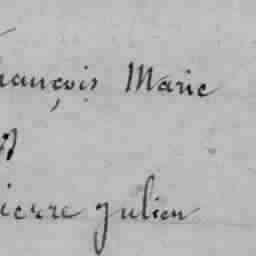 François Marie
Pierre Julien